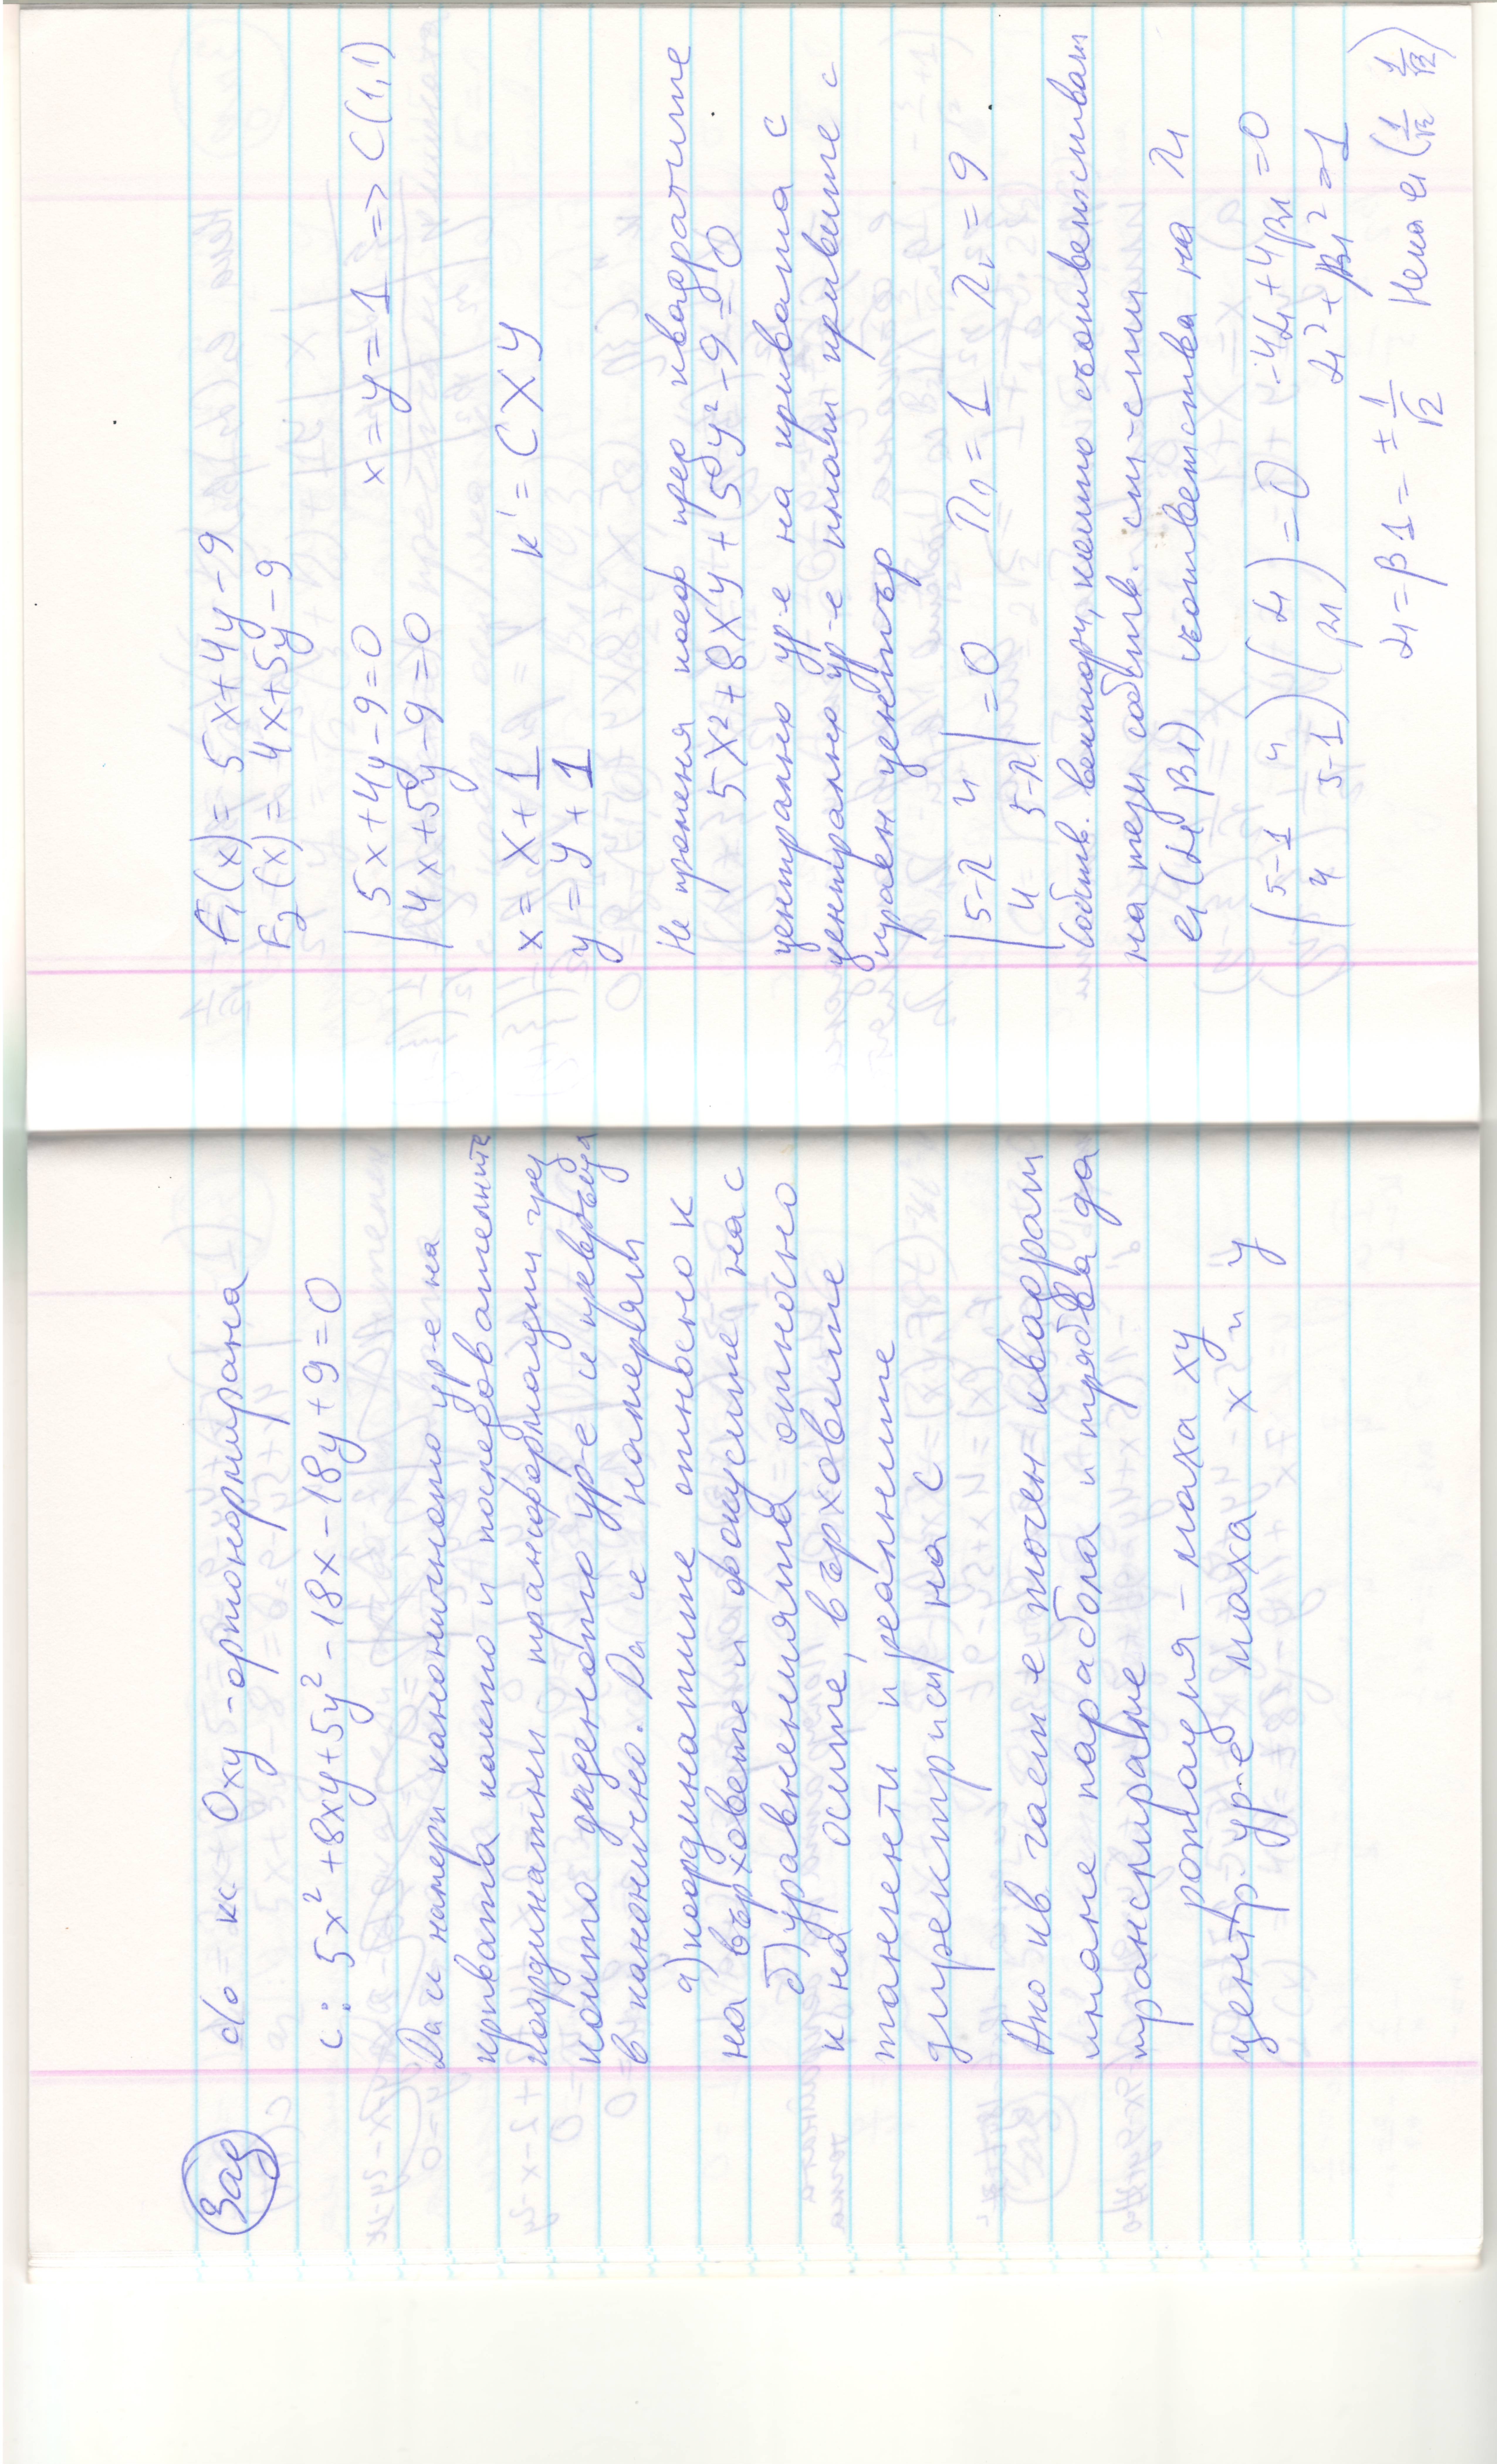 Зад
do = кк Oxy - ортонормирана
c: 5x² + 8xy + 5y² - 18x - 18y + 9 = 0
Да се намери каноничното ур-е на
кривата както и последователните
координатни трансформации чрез
които даденото ур-е се превръща
в канонично. Да се намерят
а) координатите относно к
на върховете и фокусите на с
б) уравненията относно
к на осите, върховите
тангенти и реалните
директриси на с
Ако кв част е точен квадрат
имаме парабола и трябва да
транслираме
ротация - маха xy
центр. ур-е маха x и y
F₁(x) = 5x + 4y - 9
F₂(x) = 4x + 5y - 9
| 5x + 4y - 9 = 0
| 4x + 5y - 9 = 0 x = y = 1 => C(1,1)
x = X + 1
y = Y + 1 k' = CXY
Не променя коеф пред квадратите
5X² + 8XY + 5Y² - 9 = 0
централно ур-е на кривата с
централно ур-е имат кривите с
краен център
| 5-λ 4 |
| 4 5-λ | = 0 λ₁ = 1 λ₂ = 9
Собств. вектори, които съответстват
на тези собств. ст-сти
e₁(α₁ β₁) съответства на λ₁
(5-1 4) (α₁) = 0 4α₁ + 4β₁ = 0
(4 5-1) (β₁) α₁² + β₁² = 1
α₁ = β₁ = ± 1/√2 Нека e₁(1/√2 1/√2)